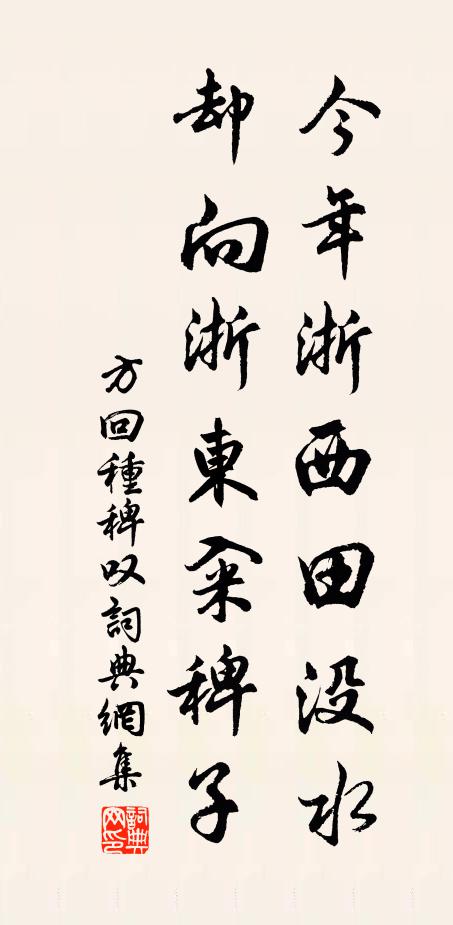 今年浙西田没水
却向浙東籴稗子
方回種稗叹詞典網集
詞典網印